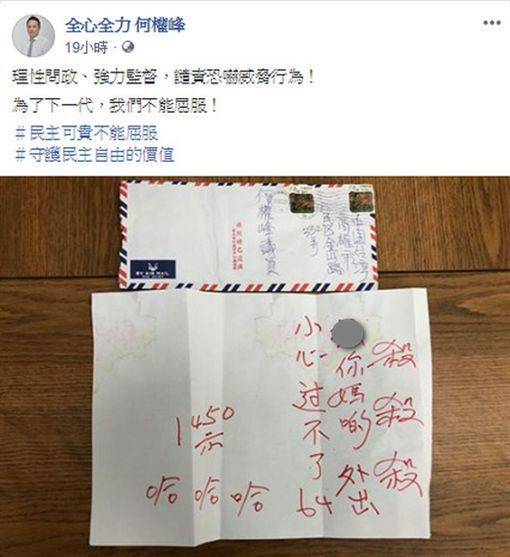 全心全力 何權峰
19小時
理性問政、強力監督，譴責恐嚇威脅行為！
為了下一代，我們不能屈服！
#民主可貴不能屈服
#守護民主自由的價值
何權峰議員
BY AIR MAIL
殺殺殺
你媽的 外出
小心过不了64
1450
示
哈哈哈